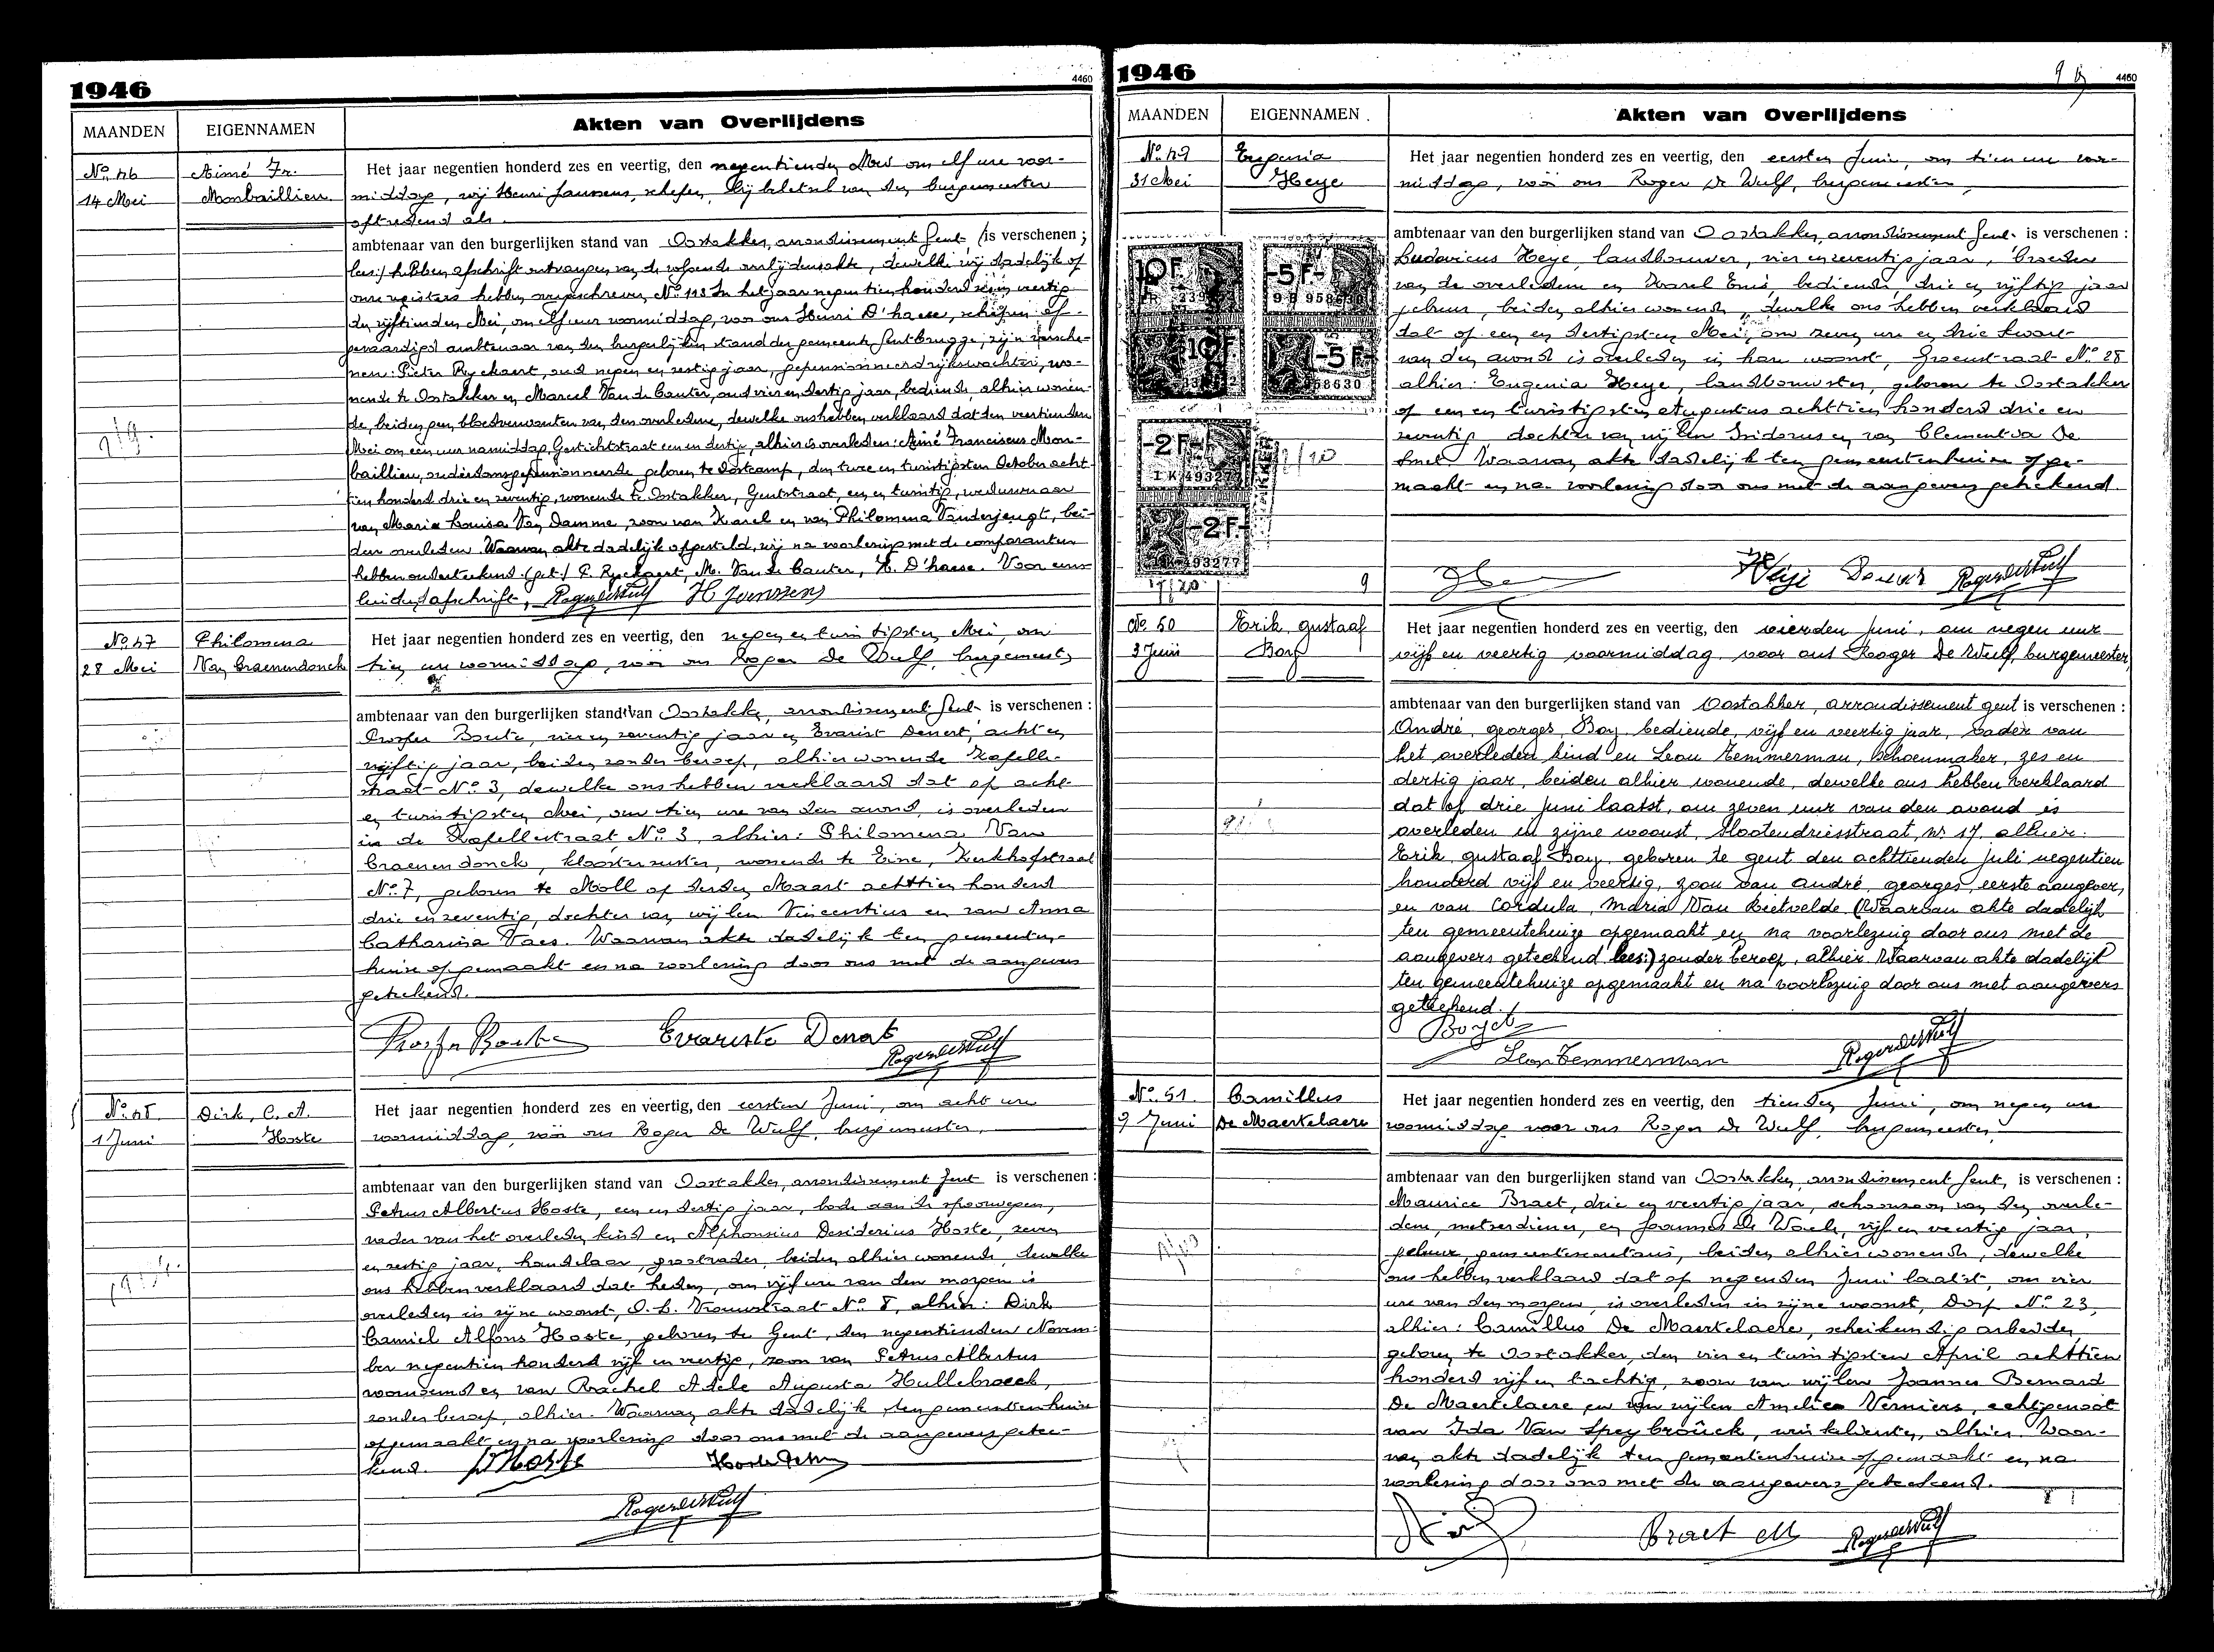 1946
4460
MAANDEN
EIGENNAMEN
Akten van Overlijdens
No 46
14 Mei
Aimé Fr.
Monbaillieu
Het jaar negentien honderd zes en veertig, den negentienden Mei om elf ure voor-
middag, wij Henri Janssens, schepen, bij beletsel van den burgemeester
optredend als
ambtenaar van den burgerlijken stand van Oostakker, arrondissement Gent, (is verschenen;
lees:) hebben afschrift ontvangen van de volgende overlijdensakte, dewelke wij dadelijk op
onze registers hebben overgeschreven No 113 In het jaar negentien honderd zes en veertig
den vijftienden Mei, om elf uur voormiddag, voor ons Henri D'haese, schepen af-
gevaardigd ambtenaar van den burgerlijken stand der gemeente Gentbrugge, zijn versche-
nen: Pieter Ryckaert, oud negen en zestig jaar, gepensionneerd rijkswachter, wo-
nende te Oostakker en Marcel Van de Cauter, oud vier en dertig jaar, bediende, alhier wonen-
de, beiden geen bloedverwanten van den overledene, dewelke ons hebben verklaard dat den veertienden
Mei om een uur namiddag, Gestichtstraat een en dertig, alhier is overleden: Aimé Franciscus Mon-
baillieu, ouderdomsgepensionneerde geboren te Oostcamp, den twee en twintigsten October acht-
tien honderd drie en zeventig, wonende te Oostakker, Gentstraat, een en twintig, weduwnaar
van Maria Louisa Van Damme, zoon van Karel en van Philomena Vanderjeugt, bei-
den overleden. Waarvan akte dadelijk opgesteld, wij na voorlezing met de comparanten
hebben onderteekend. (get.) P. Ryckaert, M. Van de Cauter, H. D'haese. Voor eens-
luidend afschrift, Roger De Wulf H Janssens
No 47
28 Mei
Philomena
Van Craenendonck
Het jaar negentien honderd zes en veertig, den negen en twintigsten Mei, om
tien ure voormiddag, vóór ons Roger De Wulf, burgemeester
ambtenaar van den burgerlijken stand van Oostakker, arrondissement Gent is verschenen:
Prosper Boute, vier en zeventig jaar en Evarist Denert, acht en
vijftig jaar, beiden zonder beroep, alhier wonende Kapelle-
straat No 3, dewelke ons hebben verklaard dat op acht
en twintigsten Mei, om tien ure van den avond, is overleden
in de Kapellestraat No 3, alhier: Philomena Van
Craenendonck, kloosterzuster, wonende te Eine, Kerkhofstraat
No 7, geboren te Moll op derden Maart achttien honderd
drie en zeventig, dochter van wijlen Vincentius en van Anna
Catharina Vaes. Waarvan akte dadelijk ten gemeenten-
huize opgemaakt en na voorlezing door ons met de aangevers
getekend.
Prosper Boute Evariste Denert
Roger De Wulf
No 48
1 Juni
Dirk, C. A.
Hoste
Het jaar negentien honderd zes en veertig, den eersten Juni, om acht ure
voormiddag, vóór ons Roger De Wulf, burgemeester,
ambtenaar van den burgerlijken stand van Oostakker, arrondissement Gent is verschenen:
Petrus Albertus Hoste, een en dertig jaar, bode aan de spoorwegen,
vader van het overleden kind en Alphonsius Desiderius Hoste, zeven
en zestig jaar, handelaar, grootvader, beiden alhier wonende, dewelke
ons hebben verklaard dat heden, om vijf ure van den morgen is
overleden in zijne woonst, O. L. Vrouwstraat No 8, alhier: Dirk
Camiel Alfons Hoste, geboren te Gent, den negentienden Novem-
ber negentien honderd vijf en veertig, zoon van Petrus Albertus
voornoemd en van Rachel Adele Augusta Hullebroeck,
zonder beroep, alhier. Waarvan akte dadelijk ten gemeentenhuize
opgemaakt en na voorlezing door ons met de aangevers getee-
kend. Hoste
Roger De Wulf
1946
4460
MAANDEN
EIGENNAMEN
Akten van Overlijdens
No 49
31 Mei
Eugenia
Heye
Het jaar negentien honderd zes en veertig, den eersten Juni, om tien ure voor-
middag, vóór ons Roger De Wulf, burgemeester,
ambtenaar van den burgerlijken stand van Oostakker, arrondissement Gent is verschenen:
Ludovicus Heye, landbouwer, vier en zeventig jaar, broeder
van de overledene en Karel Enis, bediende, drie en vijftig jaar
gebuur, beiden alhier wonende, dewelke ons hebben verklaard
dat op een en dertigsten Mei, om zeven ure en drie kwart
van den avond is overleden in hare woonst, Groenstraat No 28
alhier: Eugenia Heye, landbouwster, geboren te Oostakker
op een en twintigsten Augustus achttien honderd drie en
zeventig, dochter van wijlen Isidorus en van Clementia De
Smet. Waarvan akte dadelijk ten gemeentenhuize opge-
maakt en na voorlezing door ons met de aangevers getekend.
10F
-5F-
10F
-5F-
958630
-2F-
I K 493277
-2F-
493277
Heye Roger De Wulf
No 50
3 Juni
Erik, Gustaaf
Boy
Het jaar negentien honderd zes en veertig, den vierden Juni, om negen uur
vijf en veertig voormiddag, voor ons Roger De Wulf, burgemeester,
ambtenaar van den burgerlijken stand van Oostakker, arrondissement Gent is verschenen:
André, Georges Boy, bediende, vijf en veertig jaar, vader van
het overleden kind en Leon Temmerman, schoenmaker, zes en
dertig jaar, beiden alhier wonende, dewelke ons hebben verklaard
dat op drie Juni laatst, om zeven uur van den avond is
overleden in zijne woonst, Slootendriesstraat, nr 17, alhier:
Erik, Gustaaf Boy, geboren te Gent den achttienden Juli negentien
honderd vijf en veertig, zoon van André, Georges, eerste aangever,
en van Cordula, Maria Van Rietvelde. (Waarvan akte dadelijk
ten gemeentehuize opgemaakt en na voorlezing door ons met de
aangevers geteekend lees:) zonder beroep, alhier. Waarvan akte dadelijk
ten gemeentehuize opgemaakt en na voorlezing door ons met aangevers
geteekend.
Leon Temmerman Roger De Wulf
No 51
9 Juni
Camillus
De Maertelaere
Het jaar negentien honderd zes en veertig, den tienden Juni, om negen ure
voormiddag voor ons Roger De Wulf, burgemeester,
ambtenaar van den burgerlijken stand van Oostakker, arrondissement Gent, is verschenen:
Maurice Braet, drie en veertig jaar, schoonzoon van den overle-
dene, metserdiener, en Joannes De Waele, vijf en veertig jaar,
gebuur, gemeentesecretaris, beiden alhier wonende, dewelke
ons hebben verklaard dat op negenden Juni laatst, om vier
ure van den morgen, is overleden in zijne woonst, Dorp No 23,
alhier: Camillus De Maertelaere, scheikundig arbeider,
geboren te Oostakker, den vier en twintigsten April achttien
honderd vijf en tachtig, zoon van wijlen Joannes Bernard
De Maertelaere en van wijlen Amelia Verniers, echtgenoot
van Ida Van Speybroück, winkelierster, alhier. Waar-
van akte dadelijk ten gemeentenhuize opgemaakt en na
voorlezing door ons met de aangevers geteekend.
Braet M Roger De Wulf